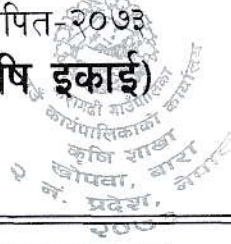 पित-२०७३
षि इकाई)
गढी गाउँपालि
कार्यपालिकाको कार्यालय
कृषि शाखा
खोपवा, बारा
२ नं. प्रदेश, नेपाल
२०७